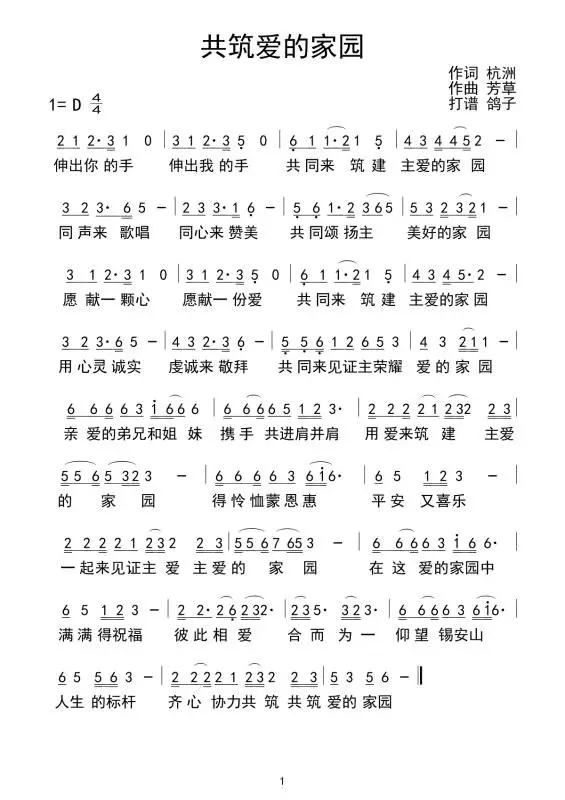 共筑爱的家园
作词 杭洲
作曲 芳草
打谱 鸽子
1= D 4/4
2 1 2· 3 1 0 | 3 1 2· 3 5 0 | 6 1 1·2 1 5 | 4 3 4 4 5 2 — |
伸出你 的手 伸出我 的手 共 同来 筑 建 主爱的家 园
3 2 3· 6 5 — | 2 3 2· 3 6 — | 5 6 1·2 3 6 5 | 5 3 2 3 2 1 — |
同 声来 歌唱 同心来 赞美 共 同颂 扬主 美好的家 园
3 1 2·3 1 0 | 3 1 2·3 5 0 | 6 1 1·2 1 5 | 4 3 4 4 5·2 — |
愿 献一 颗心 愿献一 份爱 共 同来 筑 建 主爱的家 园
3 2 3·6 5 — | 4 3 2·3 6 — | 5 5 6 1 2 6 5 3 | 4 3 2 1 1 — |
用 心灵 诚实 虔诚来 敬拜 共 同来见证主荣耀 爱 的 家 园
6 6 6 6 3 i 6 6 | 6 6 6 6 5 1 2 3· | 2 2 2 2 1 2 3 2 2 3 |
亲 爱的弟兄和姐 妹 携 手 共进肩并肩 用 爱来筑 建 主爱
5 5 6 5 3 2 3 — | 6 6 6 6 3 6 i 6· | 6 5 1 2 3 — |
的 家 园 得 怜 恤蒙 恩 惠 平 安 又喜乐
2 2 2 2 1 2 3 2 2 3 | 5 5 6 7 6 5 3 — | 6 6 6 6 3 i 6· |
一 起来见证主 爱 主 爱 的 家 园 在 这 爱的家园中
6 5 1 2 3 — | 2 2· 2 6 2 3 2· | 2 3 5· 3 2 3· | 6 6 6 6 3 6 i 6· |
满 满 得祝福 彼 此 相 爱 合 而 为 一 仰 望 锡安山
6 5 5 6 3 — | 2 2 2 2 1 2 3 2 2 3 | 5 3 5 6 — ‖
人生 的标杆 齐 心 协力共 筑 共 筑 爱的 家园
1